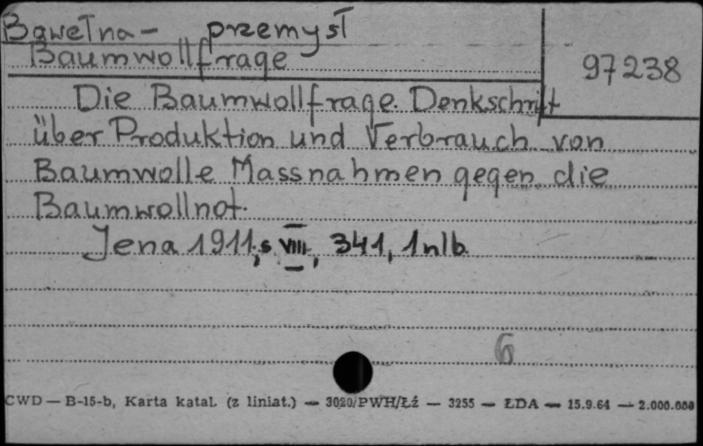 Bawełna - przemysł
Baumwollfrage
97238
Die Baumwollfrage. Denkschrift
über Produktion und Verbrauch von
Baumwolle Massnahmen gegen die
Baumwollnot.
Jena 1911, s VIII, 341, 1 nlb
6
CWD — B-15-b, Karta katal. (z liniat.) — 3020/PWH/Łź — 3255 — ŁDA — 15.9.64 — 2.000.000